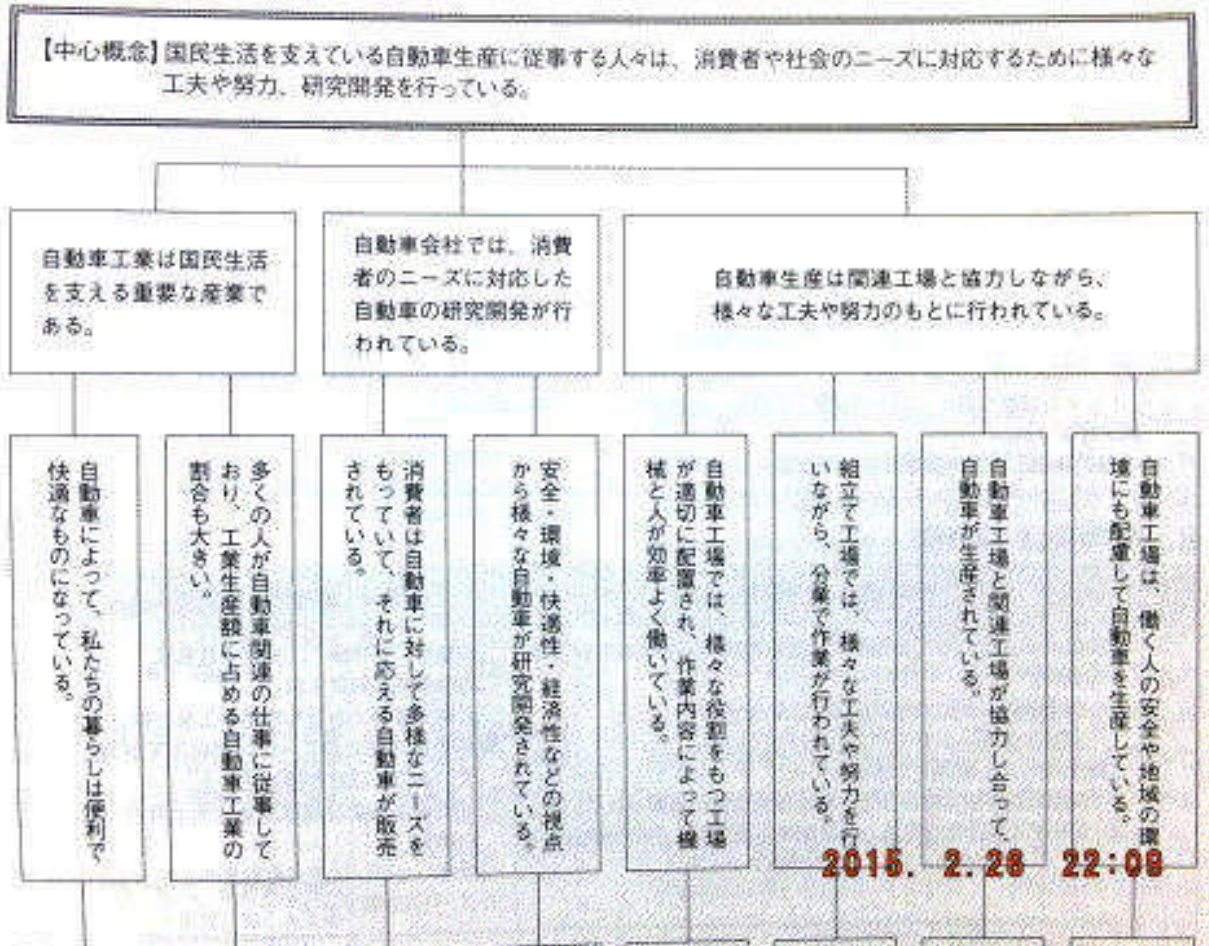 【中心概念】国民生活を支えている自動車生産に従事する人々は、消費者や社会のニーズに対応するために様々な
工夫や努力、研究開発を行っている。
自動車工業は国民生活
を支える重要な産業で
ある。
自動車会社では、消費
者のニーズに対応した
自動車の研究開発が行
われている。
自動車生産は関連工場と協力しながら、
様々な工夫や努力のもとに行われている。
自動車によって、私たちの暮らしは便利で、
快適なものになっている。
多くの人が自動車関連の仕事に従事して
おり、工業生産額に占める自動車工業の
割合も大きい。
消費者は自動車に対して多様なニーズを
もっていて、それに応える自動車が販売
されている。
安全・環境・快適性・経済性などの視点
から様々な自動車が研究開発されている。
自動車工場では、様々な役割をもつ工場
が適切に配置され、作業内容によって機
械と人が効率よく働いている。
組立て工場では、様々な工夫や努力を行
いながら、分業で作業が行われている。
自動車工場と関連工場が協力し合って、
自動車が生産されている。
自動車工場は、働く人の安全や地域の環
境にも配慮して自動車を生産している。
2015. 2.26 22:09